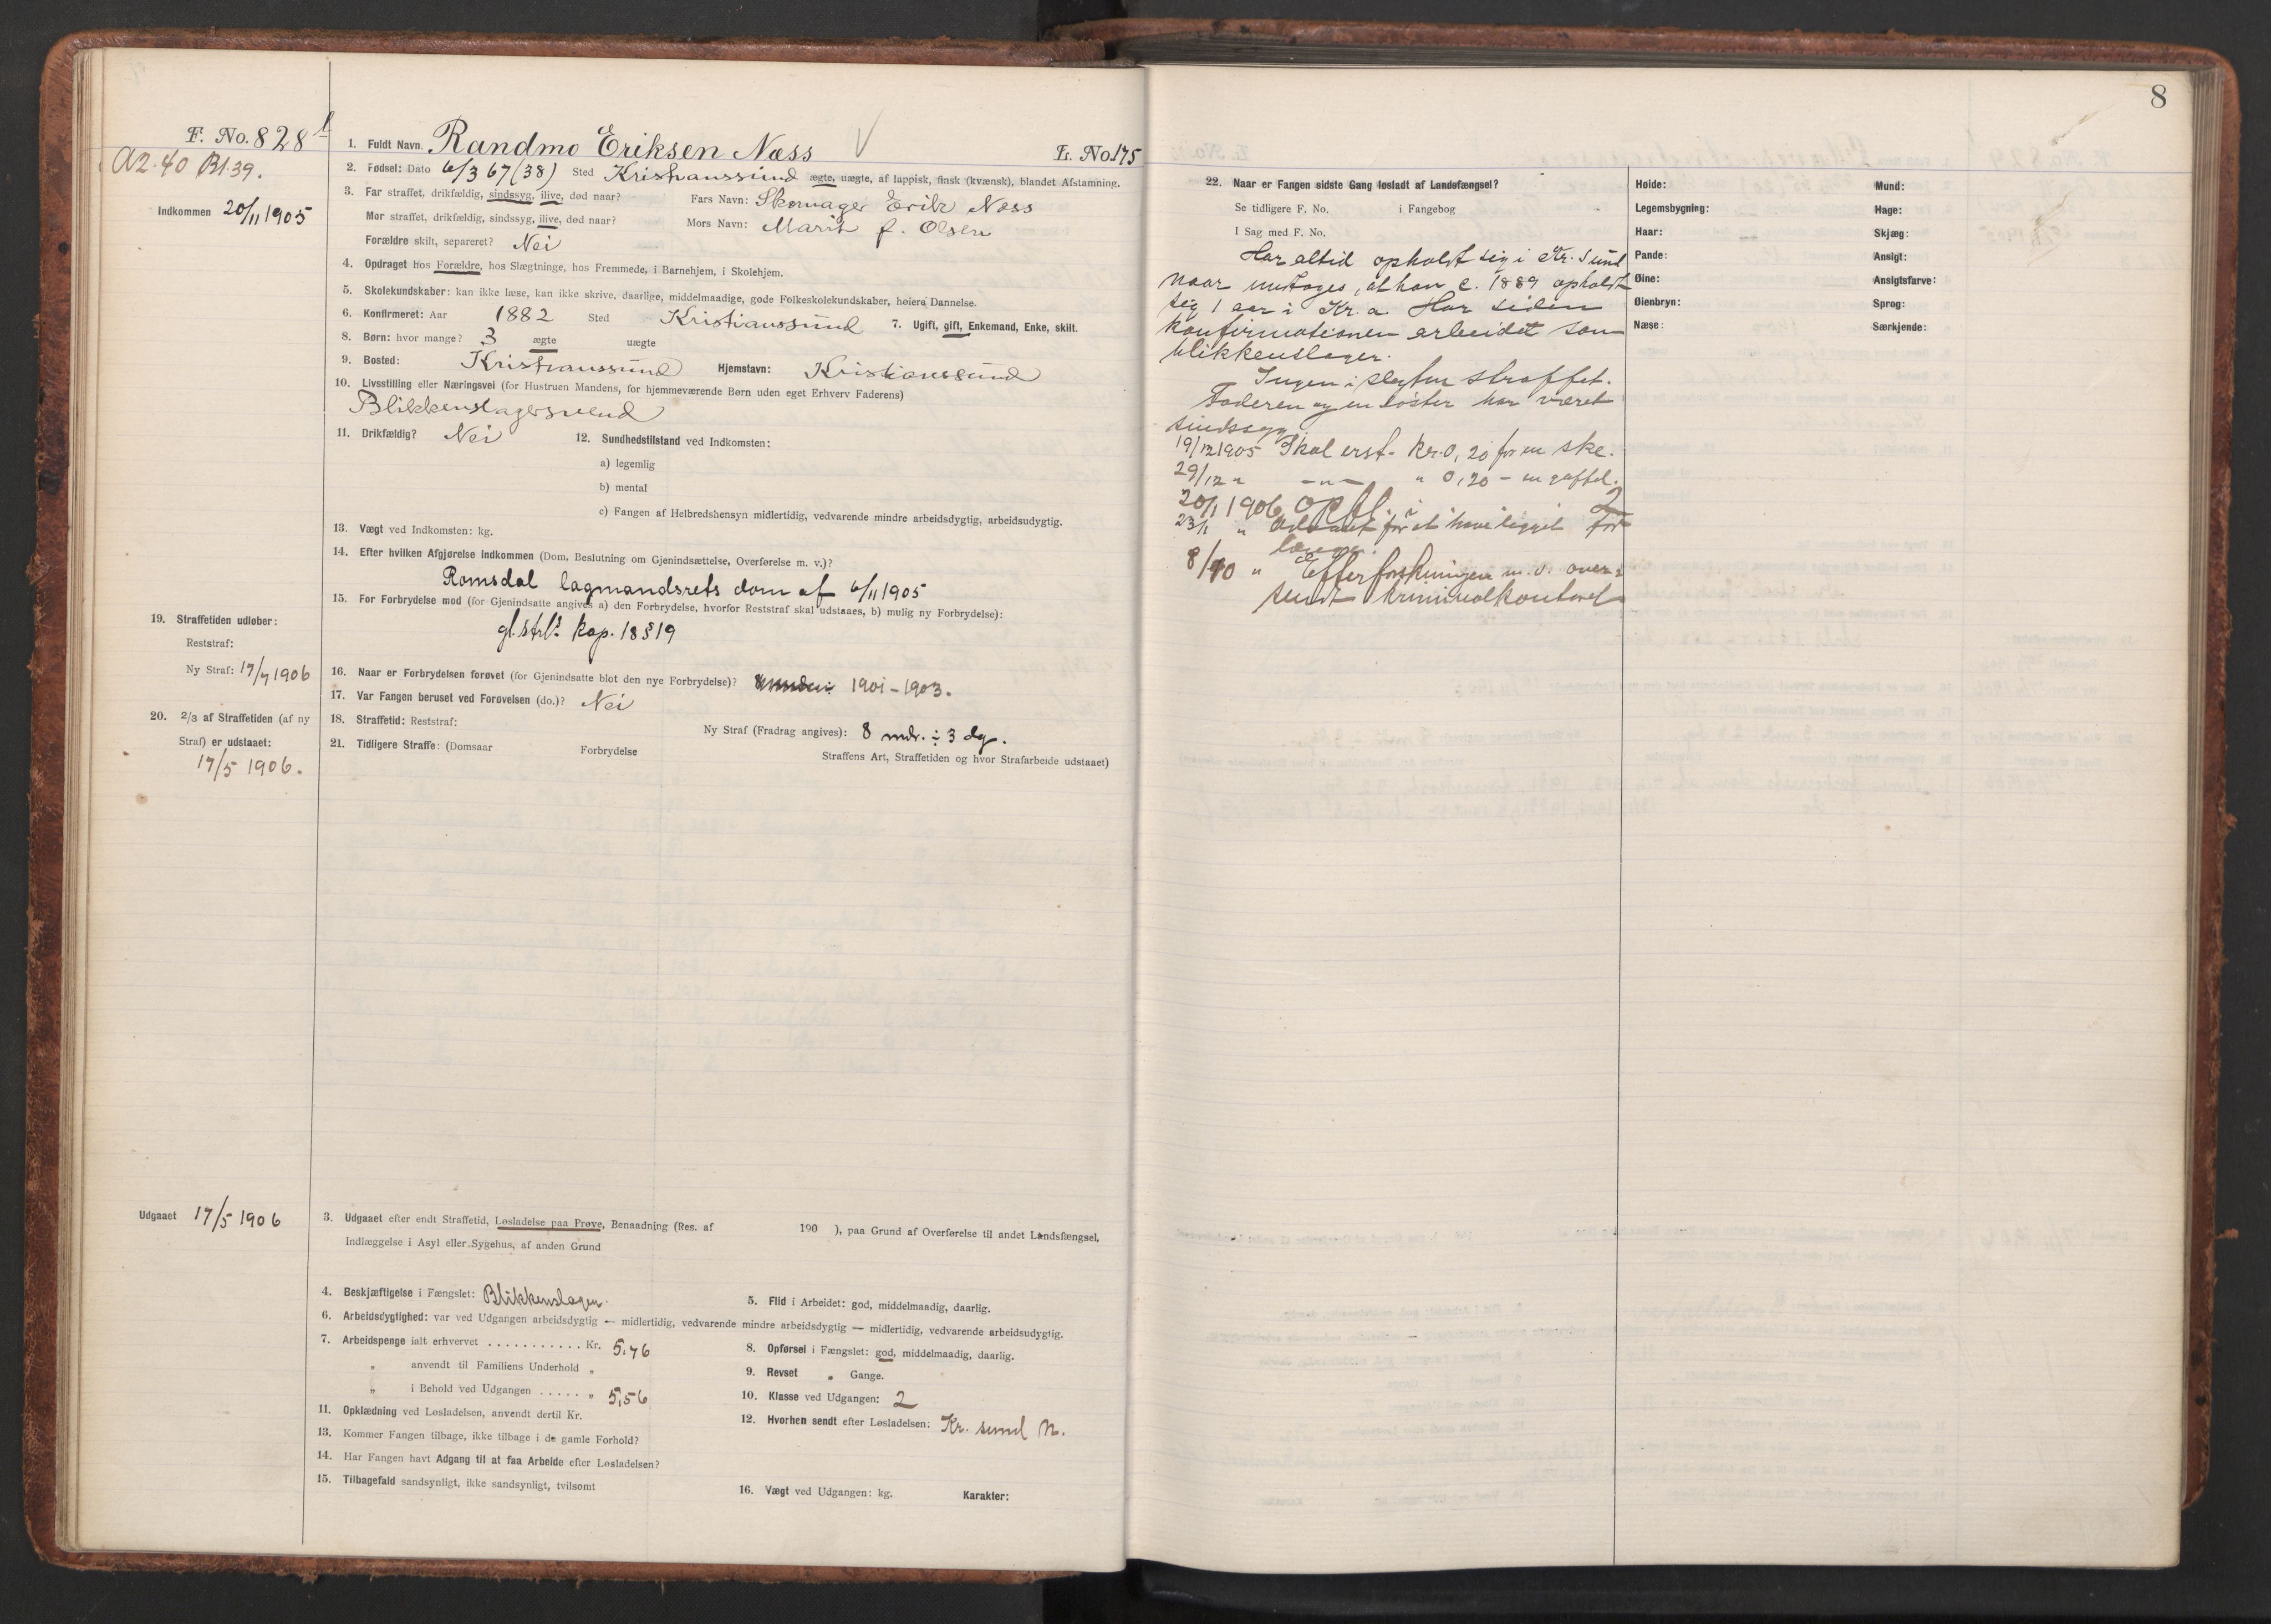 F. No. 828
A2.40 Bl.39.
Indkommen 20/11 1905
1. Fuldt Navn Randmo Eriksen Næss L. No. 175
2. Fødsel: Dato 6/3 67 (38) Sted Kristianssund ægte, uægte, af lappisk, finsk (kvænsk), blandet Afstamning.
3. Far straffet, drikfældig, sindssyg, ilive, død naar? Fars Navn: Skomager Erik Næss
Mor straffet, drikfældig, sindssyg, ilive, død naar? Mors Navn: Marit f. Olsen
Forældre skilt, separeret? Nei
4. Opdraget hos Forældre, hos Slægtninge, hos Fremmede, i Barnehjem, i Skolehjem.
5. Skolekundskaber: kan ikke læse, kan ikke skrive, daarlige, middelmaadige, gode Folkeskolekundskaber, høiere Dannelse.
6. Konfirmeret: Aar 1882 Sted Kristianssund 7. Ugift, gift, Enkemand, Enke, skilt.
8. Børn: hvor mange? 3 ægte uægte
9. Bosted: Kristianssund Hjemstavn: Kristianssund
10. Livsstilling eller Næringsvei (for Hustruen Mandens, for hjemmeværende Børn uden eget Erhverv Faderens)
Blikkenslagersvend
11. Drikfældig? Nei 12. Sundhedstilstand ved Indkomsten:
a) legemlig
b) mental
c) Fangen af Helbredshensyn midlertidig, vedvarende mindre arbeidsdygtig, arbeidsudygtig.
13. Vægt ved Indkomsten: kg.
14. Efter hvilken Afgjørelse indkommen (Dom, Beslutning om Gjenindsættelse, Overførelse m. v.)?
Romsdal lagmandsrets dom af 6/11 1905
15. For Forbrydelse mod (for Gjenindsatte angives a) den Forbrydelse, hvorfor Reststraf skal udstaaes, b) mulig ny Forbrydelse):
gl. strl. kap. 18 § 19
19. Straffetiden udløber:
Reststraf:
Ny Straf: 17/7 1906
16. Naar er Forbrydelsen forøvet (for Gjenindsatte blot den nye Forbrydelse)? 1901-1903.
17. Var Fangen beruset ved Forøvelsen (do.)? Nei
20. 2/3 af Straffetiden (af ny
Straf) er udstaaet:
17/5 1906.
18. Straffetid: Reststraf: Ny Straf (Fradrag angives): 8 mdr. ÷ 3 dg.
21. Tidligere Straffe: (Domsaar Forbrydelse Straffens Art, Straffetiden og hvor Strafarbeide udstaaet)
Udgaaet 17/5 1906
3. Udgaaet efter endt Straffetid, Løsladelse paa Prøve, Benaadning (Res. af 190 ), paa Grund af Overførelse til andet Landsfængsel,
Indlæggelse i Asyl eller Sygehus, af anden Grund
4. Beskjæftigelse i Fængslet: Blikkenslager. 5. Flid i Arbeidet: god, middelmaadig, daarlig.
6. Arbeidsdygtighed: var ved Udgangen arbeidsdygtig — midlertidig, vedvarende mindre arbeidsdygtig — midlertidig, vedvarende arbeidsudygtig.
7. Arbeidspenge ialt erhvervet ........... Kr. 5,76 8. Opførsel i Fængslet: god, middelmaadig, daarlig.
„ anvendt til Familiens Underhold „ 9. Revset „ Gange.
„ i Behold ved Udgangen ..... „ 5,56 10. Klasse ved Udgangen: 2
11. Opklædning ved Løsladelsen, anvendt dertil Kr. 12. Hvorhen sendt efter Løsladelsen: Kr. sund N.
13. Kommer Fangen tilbage, ikke tilbage i de gamle Forhold?
14. Har Fangen havt Adgang til at faa Arbeide efter Løsladelsen?
15. Tilbagefald sandsynligt, ikke sandsynligt, tvilsomt 16. Vægt ved Udgangen: kg. Karakter:
8
22. Naar er Fangen sidste Gang løsladt af Landsfængsel?
Se tidligere F. No. i Fangebog
I Sag med F. No.
Har altid opholdt sig i Kr. Sund
naar undtages, at han c. 1889 opholdt
sig 1 aar i Kr.a. Har siden
konfirmationen arbeidet som
blikkenslager.
Ingen i slegten straffet.
Faderen og en søster har været
sindssyg.
19/12 1905 Skal erst. kr. 0,20 for en ske.
29/12 " —"— " 0,20 - en gaffel.
20/1 1906 opfl. i 2
23/1 " Advaret for at have ligget for
længe.
8/10 " Efterforskningen m.v. over-
sendt kriminalkontoret
Høide: Mund:
Legemsbygning: Hage:
Haar: Skjæg:
Pande: Ansigt:
Øine: Ansigtsfarve:
Øienbryn: Sprog:
Næse: Særkjende: